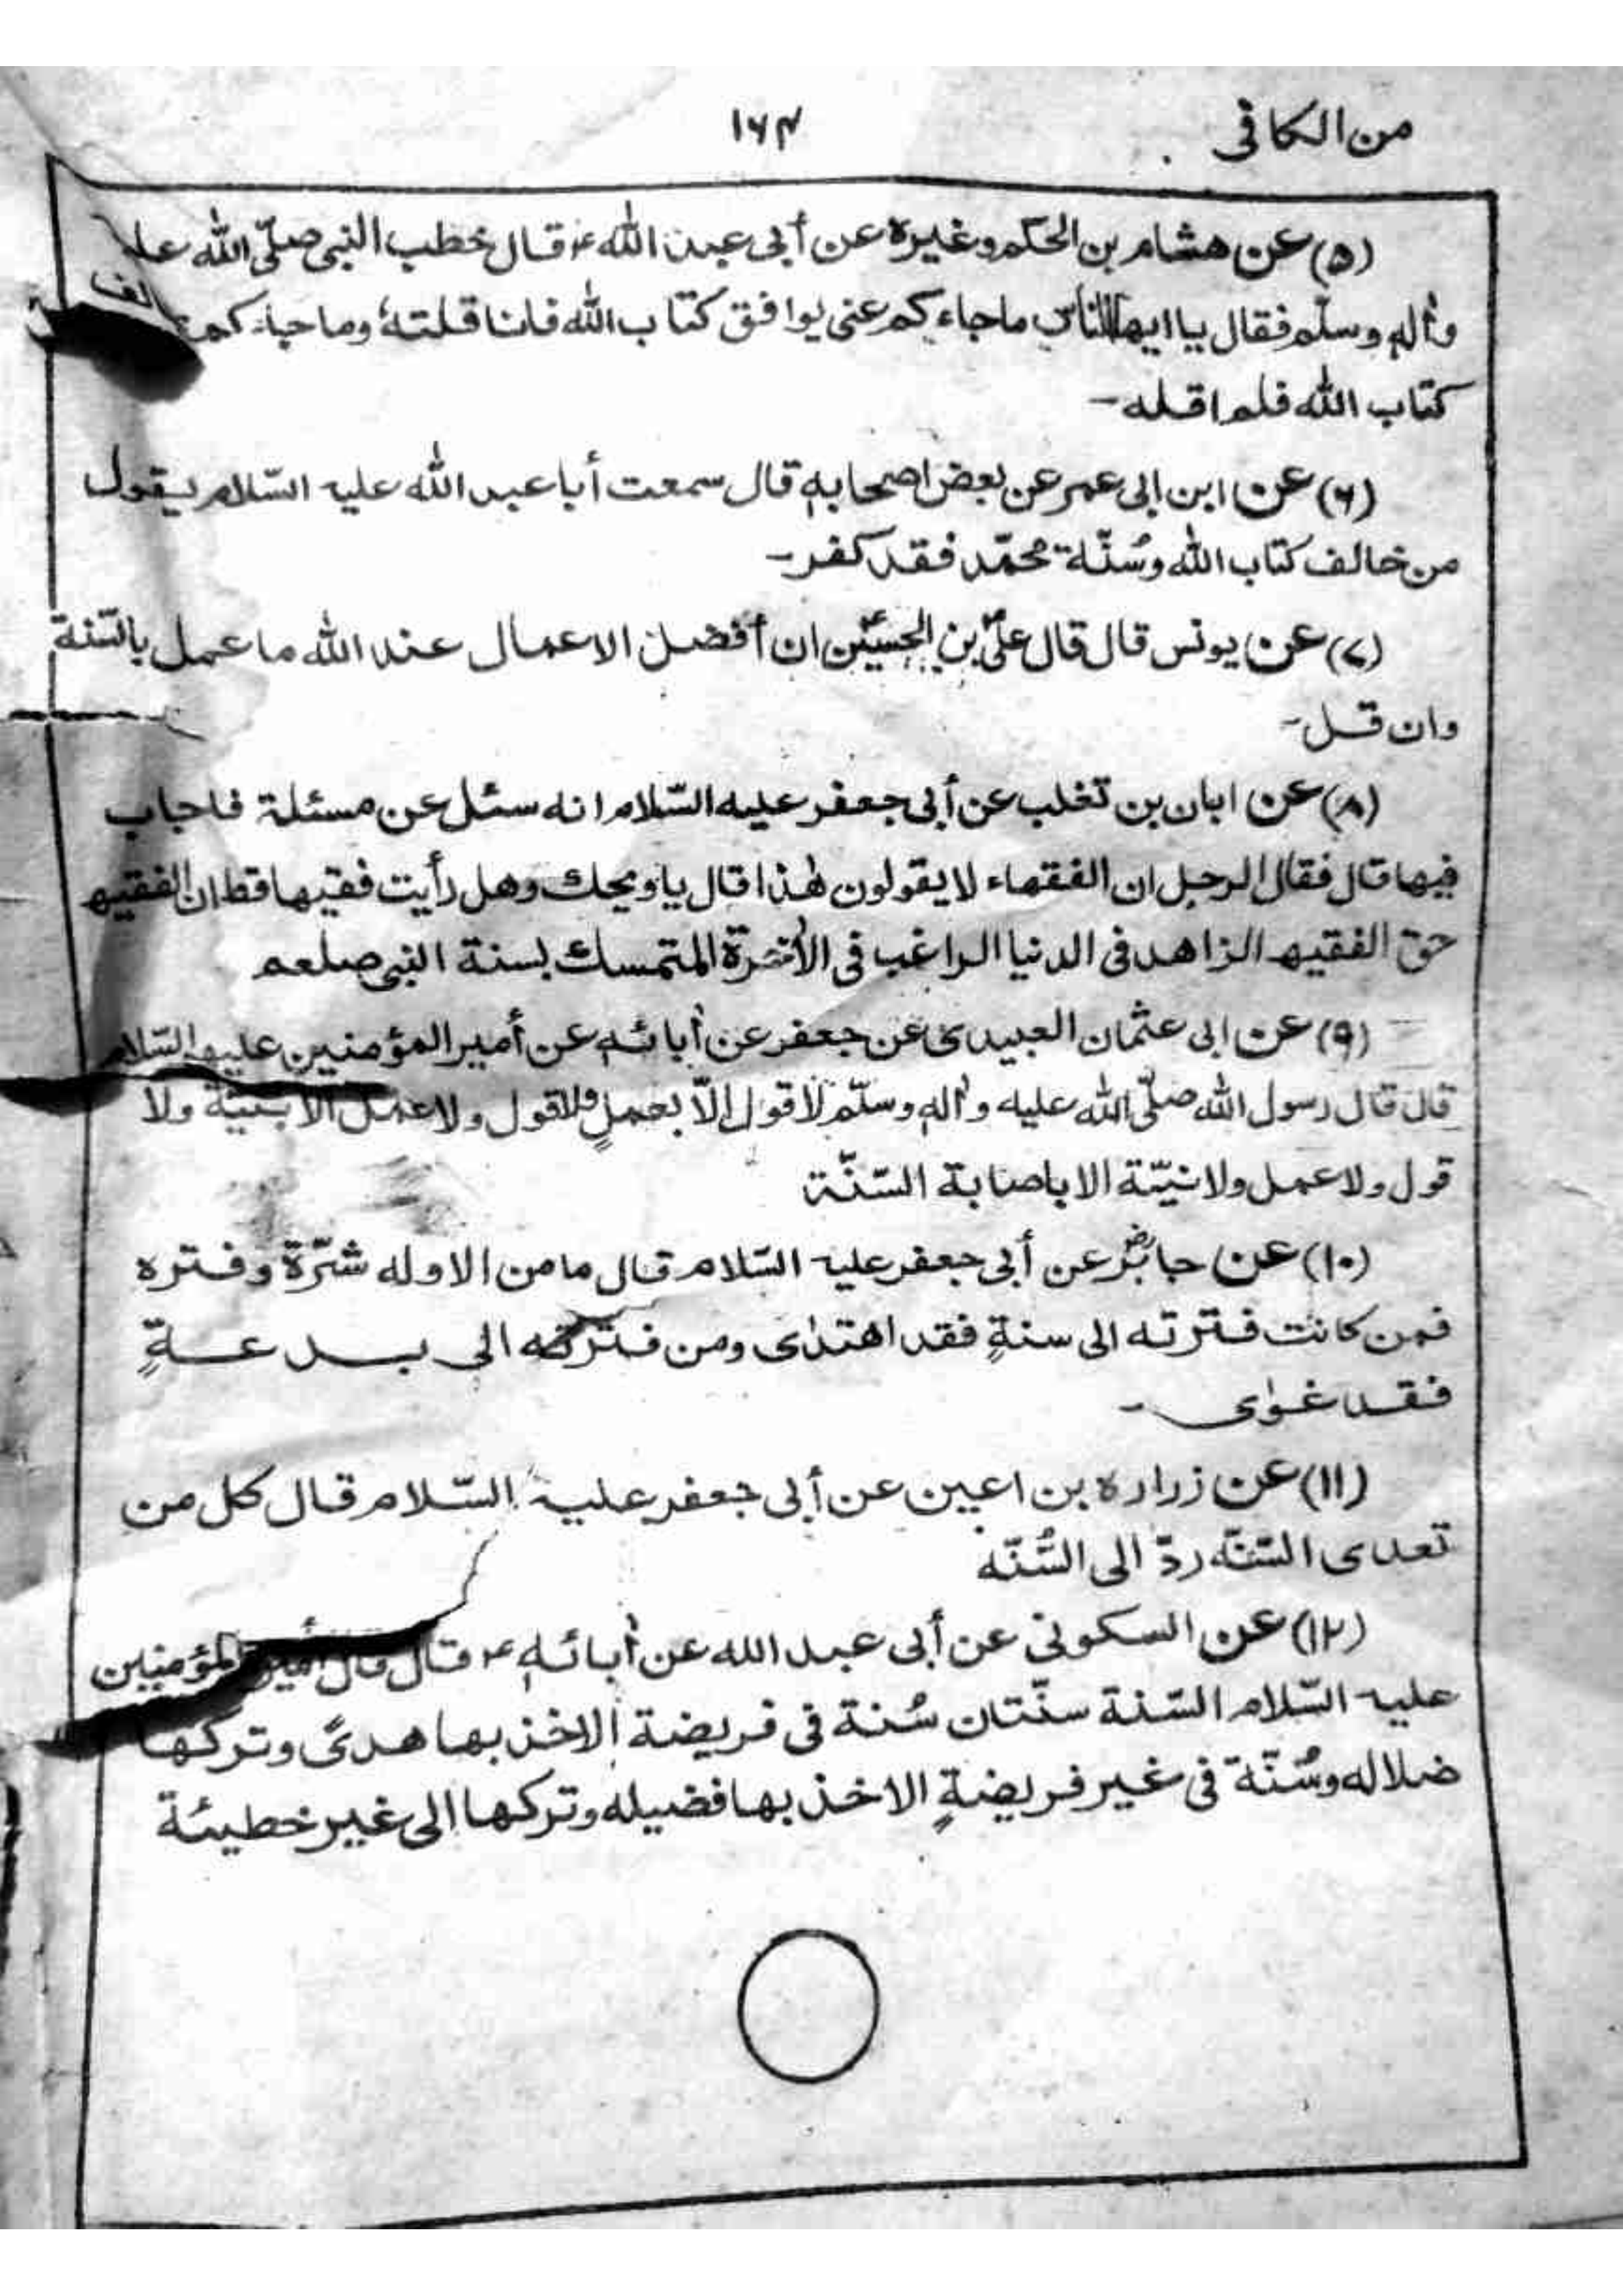 من الكافى
۱۶۴
(۵) عن هشام بن الحكم وغيره عن أبى عبد الله ؑ قال خطب النبى صلّى الله
واٰله وسلّم فقال يا ايها الناس ماجاءكم عنى يوافق كتاب الله فانا قلته وماجاءكم
كتاب الله فلم اقله -
(۶) عن ابن ابى عمر عن بعض اصحابه قال سمعت أبا عبد الله عليه السّلام يقول
من خالف كتاب الله وسُنّة محمّد فقد كفر -
(۷) عن يونس قال قال علىّ بن الحسينؑ ان أفضل الاعمال عند الله ماعمل بالسّنة
وان قل -
(۸) عن ابان بن تغلب عن أبى جعفر عليه السّلام انه سئل عن مسئلة فاجاب
فيها قال فقال الرجل ان الفقهاء لا يقولون هٰذا قال يا ويحك وهل رأيت فقيها قط ان الفقيه
حق الفقيه الزاهد فى الدنيا الراغب فى الاٰخرة المتمسك بسنة النبى صلعم
(۹) عن ابى عثمان العبيدى عن جعفر عن اٰبائه عن أمير المؤمنين عليه السّلام
قال قال رسول الله صلّى الله عليه واٰله وسلّم لا قول إلّا بعملٍ ولا قول ولا عمل الا بنيّة ولا
قول ولا عمل ولا نيّة الا باصابة السّنّة
(۱۰) عن جابرؓ عن أبى جعفر عليه السّلام قال مامن الا وله شرّة وفتره
فمن كانت فترته الى سنةٍ فقد اهتدٰى ومن فترته الى بدعةٍ
فقد غوٰى -
(۱۱) عن زراره بن اعين عن أبى جعفر عليه السّلام قال كل من
تعدى السّنّه ردّ الى السُّنّه
(۱۲) عن السكونى عن أبى عبد الله عن اٰبائه ؑ قال قال أمير المؤمنين
عليه السّلام السّنة سنّتان سُنة فى فريضة الاخذ بها هدىً وتركها
ضلاله وسُنّة فى غير فريضةٍ الاخذ بها فضيله وتركها الى غير خطيئة